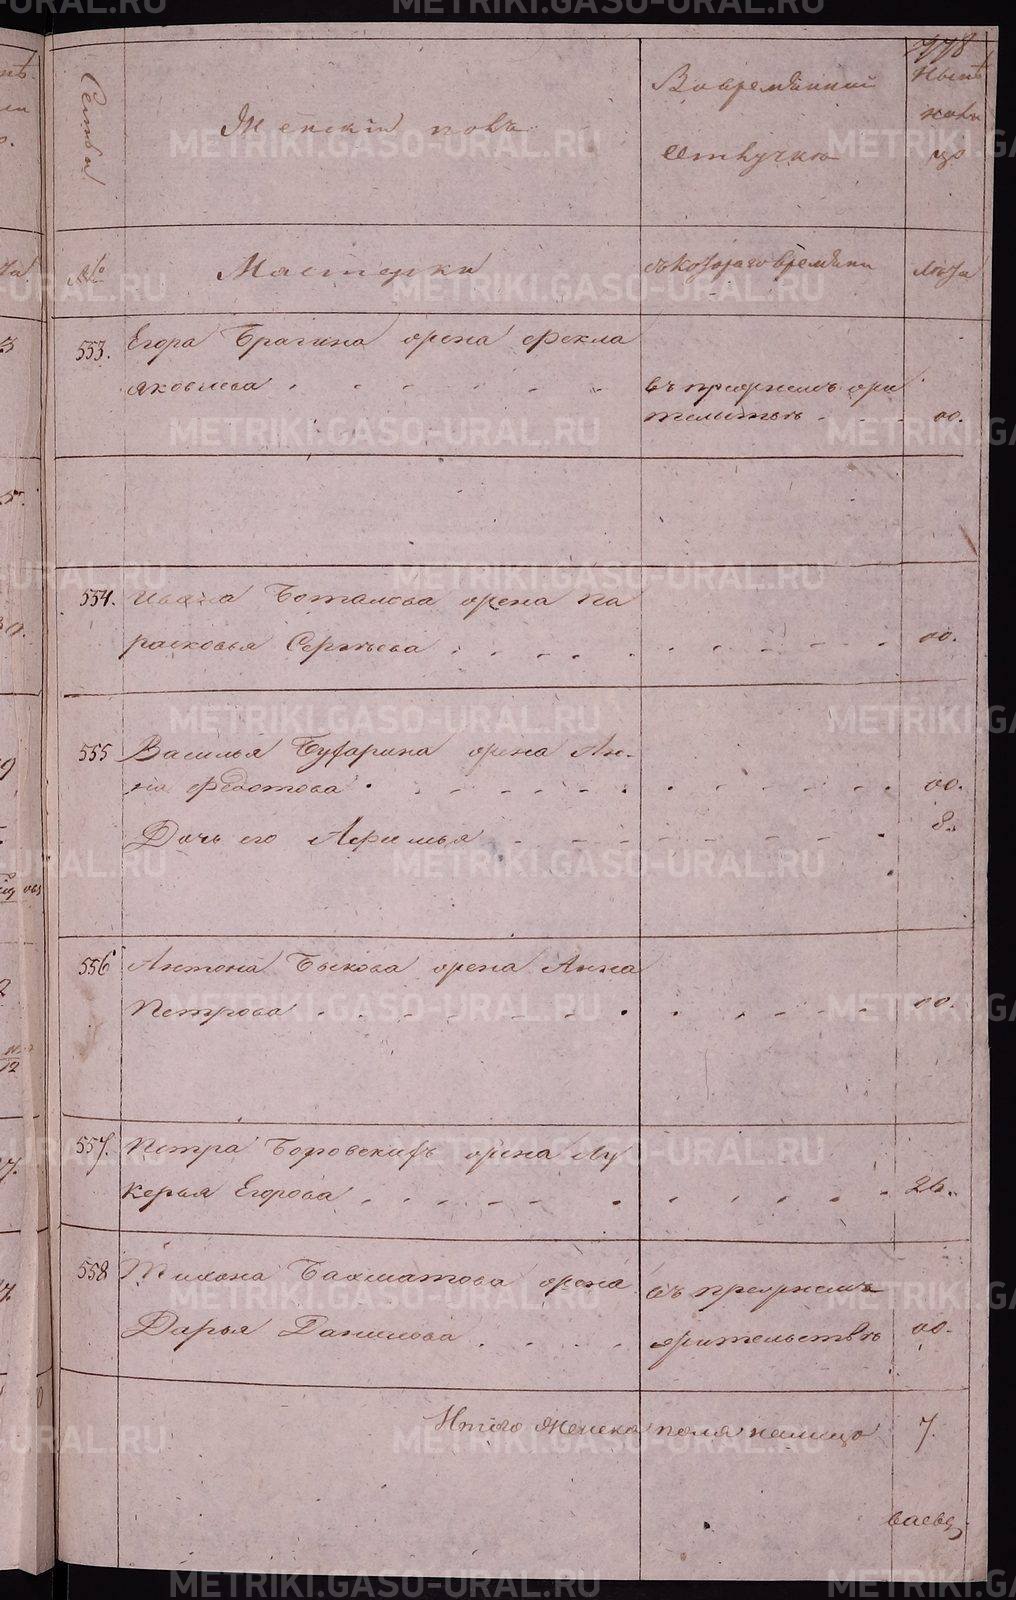 778
Семьи
Женскій полъ
Во временной
отлучкѣ
Нынѣ
нали
цо
№
Мастерки
съ котораго времяни
Лѣта
553. Егора Брагина жена Фекла
Яковлева
въ прежнемъ жи
тельствѣ 00.
554. Ивана Боталова жена Па
расковья Сергѣева 00.
555 Василья Буфарина жена Ан-
на Федотова 00.
Дочь его Афимья 8.
556 Антона Быкова жена Анна
Петрова 00.
557. Петра Боровскихъ жена Лу
керья Егорова 26.
558 Тихона Бахматова жена
въ прежнемъ
Дарья Данилова
жительствѣ 00.
Итого женска пола налицо 7.
METRIKI.GASO-URAL.RU